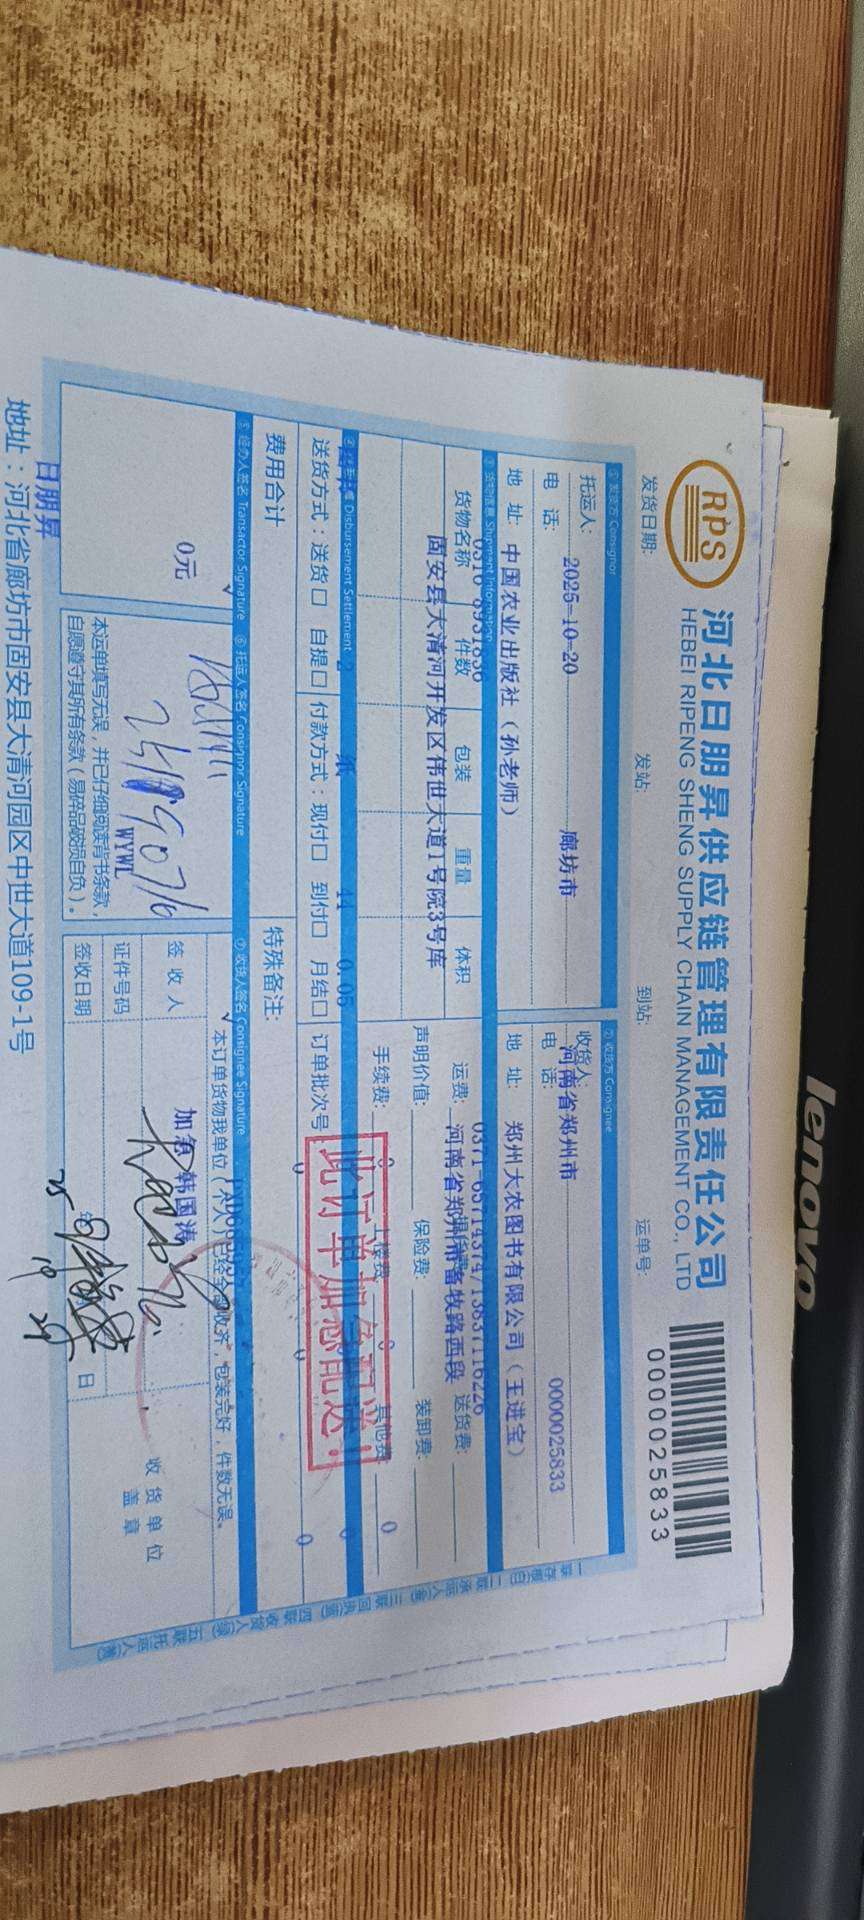 RPS
河北日朋昇供应链管理有限责任公司
HEBEI RIPENG SHENG SUPPLY CHAIN MANAGEMENT CO., LTD
0000025833
发货日期:
发站:
到站:
运单号:
① 发货方 Consignor
② 收货方 Consignee
托运人:
2025-10-20
廊坊市
收货人:
河南省郑州市
0000025833
电 话:
电 话:
地 址:
中国农业出版社（孙老师）
地 址:
郑州大农图书有限公司（王进宝）
③ 货物信息 Shipment Information
货物名称
件数
包装
重量
体积
运费:
送货费:
固安县大清河开发区伟世大道1号院3号库
河南省郑州市畜牧路西段
声明价值:
保险费:
装卸费:
手续费:
其他费:
0
Disbursement Settlement
2
纸
44
0.05
此订单加急配送!
送货方式：送货口 自提口
付款方式：现付口 到付口 月结口
订单批次号
0
0
0
费用合计
特殊备注:
⑤ 经办人签名 Transactor Signature
⑥ 托运人签名 Consignor Signature
⑦ 收货人签名 Consignee Signature
0元
本订单货物我单位（本人）已经全部收齐，包装完好，件数无误。
加急 韩国涛
签 收 人
收 货 单 位
盖 章
WYWL
证件号码
本运单填写无误，并已仔细阅读背书条款，
自愿遵守其所有条款（易碎品破损自负）。
签收日期
日
日朋昇
地址：河北省廊坊市固安县大清河园区中世大道109-1号